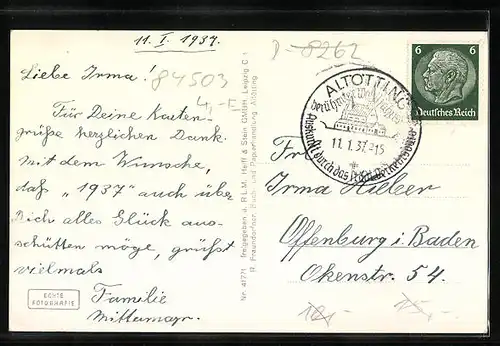 11. I. 1937.
D-8262
84503
Liebe Irma!
Für Deine Karten-
grüße herzlichen Dank.
Mit dem Wunsche,
daß "1937" auch über
Dich alles Glück aus-
schütten möge, grüßt
vielmals
Familie
Mittermayr.
ECHTE
FOTOGRAFIE
Nr. 41771 freigegeben d. R.L.M. Heff & Stein GMBH., Leipzig C 1
R. Buch- und Papierhandlung Altötting
ALTÖTTING
berühmter Wallfahrtsort
Auskunft durch das
11.1.37.
6 6
Deutsches Reich
Irma Hieber
Offenburg i. Baden
Okenstr. 54.
15,-